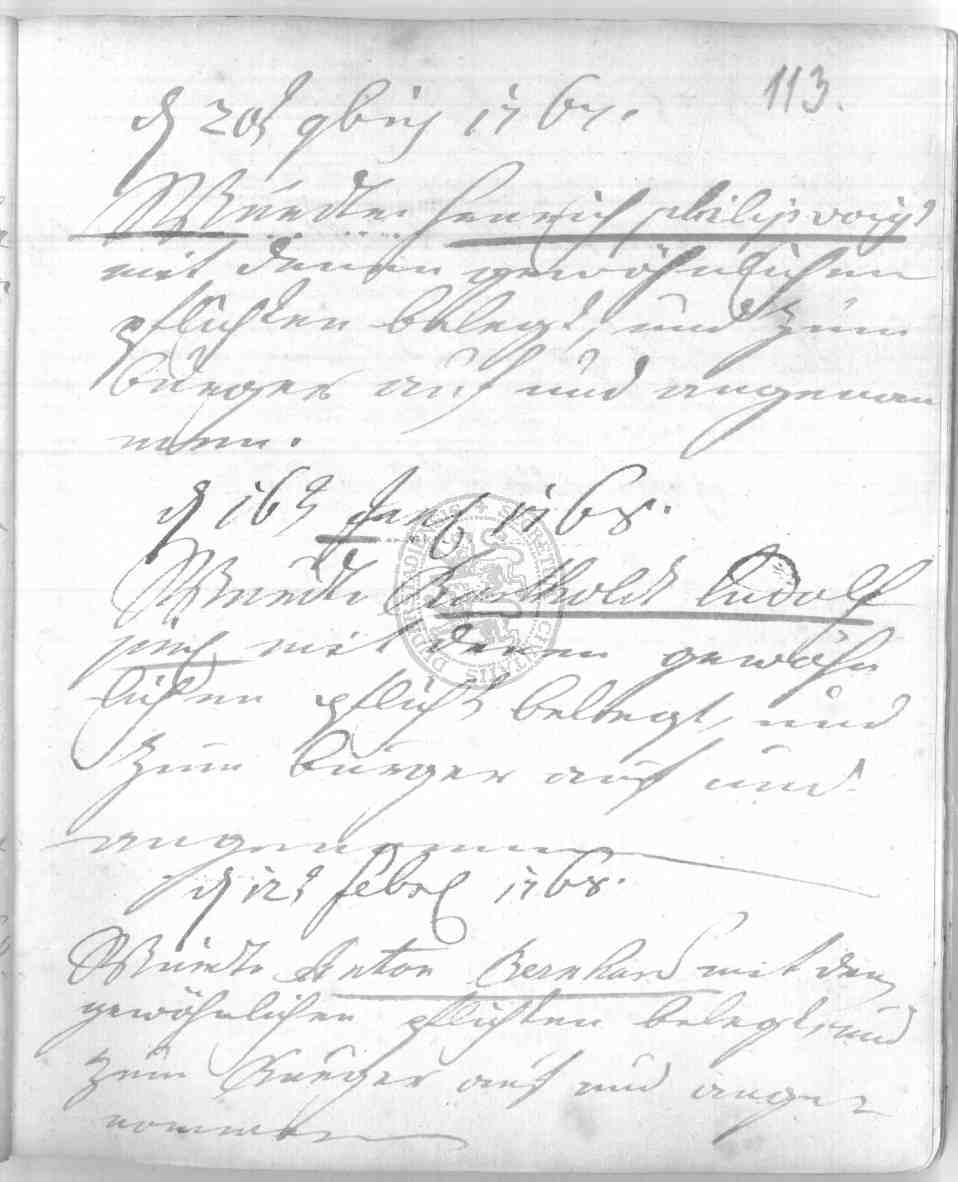 113.
d 20t 9bris 1767.
Wurde Henrich philip voigt
mit denen gewöhnlichen
pflichten belegt, und zum
bürger auf und angenom
men.
d 16t Jan 1768.
Wurde Barthold Ludolf
mit denen gewöhn
lichen pflicht belegt, und
zum bürger auf und
angenommen
d 12t febr 1768.
Wurde Anton Bernhard mit den
gewöhnlichen pflichten belegt, und
zum Bürger auf und ange
nommen